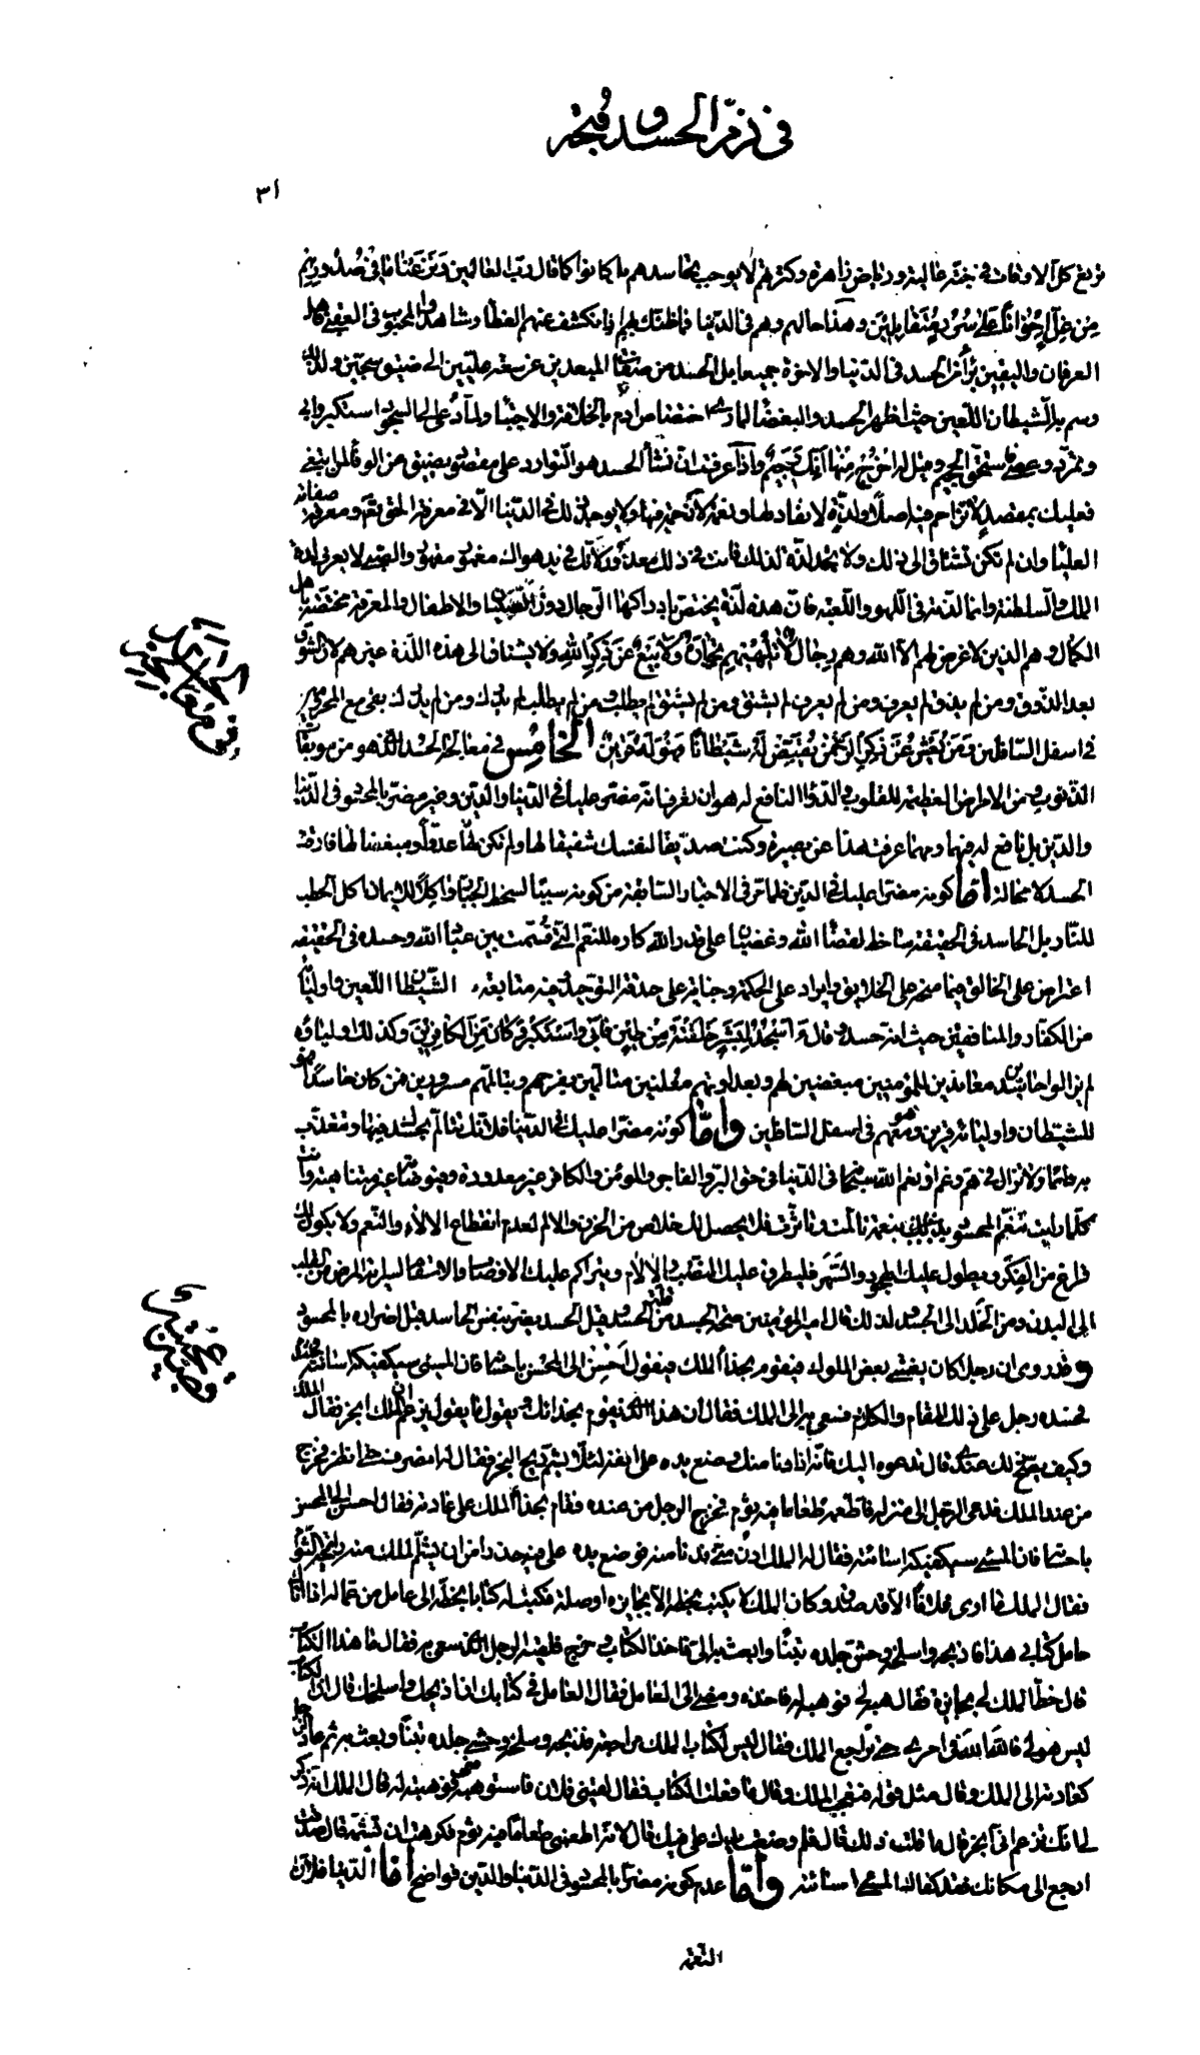 في ذمّ الحسد و قبحه
٣١
ترتع كل الاوقات في جنة عالية ورياض زاهرة وكثرتهم لا يوجب تحاسدهم بل كانوا كما قال رب العالمين ونزعنا ما في صدورهم
من غل اخوانا على سرر متقابلين وهذا حالهم وهم في الدنيا فما ظنك بهم اذا انكشف عنهم الغطاء وشاهدوا المحبوب في العقبى فاهل
العرفان واليقين برآء من الحسد في الدنيا والاخرة جميعا بل الحسد من صفات المبعدين عن سعة عليين الى ضيق سجين ولذلك
وسم به الشيطان اللعين حيث اظهر الحسد والبغضاء لما اختص ادم بالخلافة والاجتباء ولما دعى الى السجود استكبر وابى
وتمرد وعصى فاستحق الجحيم وقيل له اخرج منها انك رجيم واذا عرفت ان منشأ الحسد هو التوارد على مقصود يضيق عن الوفاء لمن ابتغى
فعليك بمقصد لا تزاحم فيه اصلا ولذة لا نفاد لها ونعمة لا زحمة فيها ولا يوجد ذلك في الدنيا الا في معرفة الحق تعالى ومعرفة صفاته
العليا وان لم تكن تشتاق الى ذلك ولا تجد لذة لذلك فانت في ذلك معذور لانك في يد هواك مغمور مقهور والصبي لا يعرف لذة
الملك والسلطنة وانما لذته في اللهو واللعبة فان هذه لذة يختص بادراكها الرجال دون الصبيان والاطفال والمعرفة مختصة باهل
الكمال وهم الذين لا غرض لهم الا الله وهم رجال لا تلهيهم تجارة ولا بيع عن ذكر الله ولا يشتاق الى هذه اللذة غيرهم لان الشوق
بعد الذوق ومن لم يذق لم يعرف ومن لم يعرف لم يشتق ومن لم يشتق لم يطلب ومن لم يطلب لم يدرك ومن لم يدرك بقى مع المحرومين
في اسفل السافلين ومن يعش عن ذكر الرحمن نقيض له شيطانا فهو له قرين الخامس في معالجة الحسد الذي هو من موبقات
الذنوب ومن الامراض العظيمة للقلوب والدواء النافع له هو ان تعرف انه مضر عليك في الدنيا والدين وغير مضر بالمحسود في الدنيا
والدين بل نافع له فيهما ومهما عرفت هذا عن بصيرة وكنت صديقا لنفسك شفيقا لها ولم تكن لها عدوا ومبغضا لها فارقت
الحسد لا محالة اما كونه مضرا عليك في الدين فلما مر في الاخبار السابقة من كونه سببا لسخط الجبار واكلا للايمان اكل الحطب
للنار بل الحاسد في الحقيقة ساخط لقضاء الله وغضبان على قدر الله كاره للنعم التي قسمت بين عباد الله وحسده في الحقيقة
اعتراض على الخالق فيما منحه على الخلايق وايراد على الحكمة وجناية على حدقة التوحيد وفيه متابعة الشيطان اللعين واوليائه
من الكفار والمنافقين حيث انه حسد وقال ءاسجد لبشر خلقته من طين فابى واستكبر وكان من الكافرين وكذلك اوليائه
لم يزالوا حاسدين معاندين للمؤمنين مبغضين لهم وبعداوتهم معلنين متالمين بفرحهم وبتالمهم مسرورين فمن كان حاسدا فهو
للشيطان واوليائه قرين ومعهم في اسفل السافلين واما كونه مضرا عليك في الدنيا فلانك تتالم بحسدك فيها وتتعذب
به دائما ولا تزال في هم وغم اذ نعم الله سبحانه في الدنيا في حق البر والفاجر والمؤمن والكافر غير معدودة وفيوضاته غير متناهية وانت
كلما رايت تنعم المحسود بنعمة تالمت وتاثرت فلا يحصل لك خلاص من الحزن والالم لعدم انقطاع الالاء والنعم ولا يكون لك
فراغ من الفكر ويطول عليك الجهد والسهر فيطرق عليك النقلب بالالام ويتراكم عليك الاوصاب والاسقام لسراية المرض من القلب
الى البدن ومن الخلد الى الجسد ولذلك قال امير المؤمنين صحة الجسد من قلة الحسد وقيل الحسد يضر بنفس الحاسد قبل اضراره بالمحسود
وقد روى ان رجلا كان يغشى بعض الملوك فيقوم بحذاء الملك فيقول احسن الى المحسن باحسانه فان المسيء سيكفيكه اسائته
فحسده رجل على ذلك المقام والكلام فسعى به الى الملك فقال ان هذا الذي يقوم بحذائك ويقول ما يقول يزعم ان الملك ابخر فقال الملك
وكيف يصح ذلك عندي قال تدعوه اليك فانه اذا دنا منك وضع يده على انفه لئلا يشم ريح البخر فقال له انصرف حتى انظر فخرج
من عند الملك فدعى الرجل الى منزله فاطعمه طعاما فيه ثوم فخرج الرجل من عنده فقام بحذاء الملك على عادته فقال احسن الى المحسن
باحسانه فان المسيء سيكفيكه اسائته فقال له الملك ادن مني فدنا منه فوضع يده على فيه حذرا من ان يشم الملك منه رائحة الثوم
فقال الملك ما ارى فلانا الا قد صدق وكان الملك لا يكتب بخطه الا بجايزة او صلة فكتب له كتابا بخطه الى عامل من عماله اذا اتاك
حامل كتابي هذا فاذبحه واسلخه وحش جلده تبنا وابعث به الي فاخذ الكتاب وخرج فلقيه الرجل الذي سعى به فقال ما هذا الكتاب
قال خط الملك لي بجايزة فقال هبه لي فوهبه له فاخذه ومضى الى العامل فقال العامل في كتابك ان اذبحك واسلخك قال ان الكتاب
ليس هو لي فالله الله في امري حتى تراجع الملك فقال ليس لكتاب الملك مراجعة فذبحه وسلخه وحشى جلده تبنا وبعث به ثم عاد الرجل
كعادته الى الملك وقال مثل قوله فتعجب الملك وقال ما فعلت الكتاب فقال لقيني فلان فاستوهبه مني فوهبته له قال الملك انه ذكر
لي انك تزعم اني ابخر قال ما قلت ذلك قال فلم وضعت يدك على فيك قال لانه اطعمني طعاما فيه ثوم فكرهت ان تشمه قال صدقت
ارجع الى مكانك فقد كفاك المسيء اسائته واما عدم كونه مضرا بالمحسود في الدنيا والدين فواضح اما الدنيا فلان
النعمة